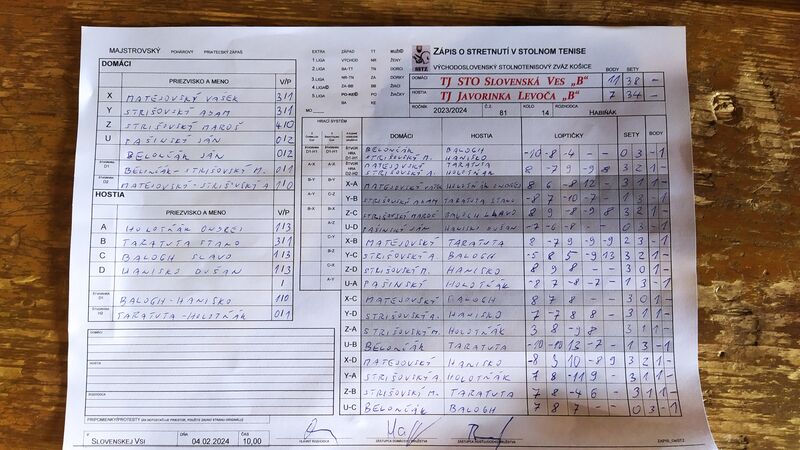 MAJSTROVSKÝ POHÁROVÝ PRIATEĽSKÝ ZÁPAS
DOMÁCI
PRIEZVISKO A MENO V/P
X MATEJOVSKÝ VAŠEK 3/1
Y STRIŠOVSKÝ ADAM 3/1
Z STRIŠOVSKÝ MAROŠ 4/0
U PAŠINSKÝ JÁN 0/2
BELONČÁK JÁN 0/2
D1 BELONČÁK-STRIŠOVSKÝ M. 0/1
D2 MATEJOVSKÝ-STRIŠOVSKÝ A 1/0
HOSTIA
PRIEZVISKO A MENO V/P
A HOLOTŇÁK ONDREJ 1/3
B TARATUTA STANO 3/1
C BALOGH SLAVO 1/3
D HANISKO DUŠAN 1/3
BALOGH-HANISKO 1/0
TARATUTA-HOLOTŇÁK 0/1
DOMÁCI
HOSTIA
ROZHODCA
PRIPOMIENKY/PROTESTY
V SLOVENSKEJ VSI DŇA 04.02.2024 ČAS 10,00
EXTRA ZÁPAD TT MUŽI
1 LIGA VÝCHOD NR ŽENY
2 LIGA BB ZA DORKY
3 LIGA NR-TN ZA DORCI
4 LIGA BB-ZA ŽIAČKY
5 LIGA PO-KE ŽIACI
BA KE
SSTZ
ZÁPIS O STRETNUTÍ V STOLNOM TENISE
VÝCHODOSLOVENSKÝ STOLNOTENISOVÝ ZVÄZ KOŠICE
BODY SETY
DOMÁCI TJ STO SLOVENSKÁ VES „B“ 11 38 -
HOSTIA TJ JAVORINKA LEVOČA „B“ 7 34 -
ROČNÍK 2023/2024 Č.S. 81 KOLO 14 ROZHODCA HABIŇÁK
HRACÍ SYSTÉM
DOMÁCI HOSTIA LOPTIČKY SETY BODY
BELONČÁK BALOGH -10 -8 -4 - - 0 3 - 1
STRIŠOVSKÝ M. HANISKO
MATEJOVSKÝ TARATUTA 8 -7 9 -9 8 3 2 1 -
STRIŠOVSKÝ A HOLOTŇÁK
X-A MATEJOVSKÝ HOLOTŇÁK ONDREJ 8 6 -8 12 - 3 1 1 -
Y-B STRIŠOVSKÝ ADAM TARATUTA STANO -8 7 -10 -7 - 1 3 - 1
Z-C STRIŠOVSKÝ MAROŠ BALOGH SLAVO 8 9 -8 -9 8 3 2 1 -
U-D PAŠINSKÝ JÁN HANISKO DUŠAN -7 -6 -8 - - 0 3 - 1
X-B MATEJOVSKÝ TARATUTA 8 -7 9 -9 -9 2 3 - 1
Y-C STRIŠOVSKÝ A. BALOGH -5 8 5 -9 13 3 2 1 -
Z-D STRIŠOVSKÝ M. HANISKO 8 9 8 - - 3 0 1 -
U-A PAŠINSKÝ HOLOTŇÁK -8 7 -8 -7 - 1 3 - 1
X-C MATEJOVSKÝ BALOGH 8 7 8 - - 3 0 1 -
Y-D STRIŠOVSKÝ A. HANISKO -7 7 8 8 - 3 1 1 -
Z-A STRIŠOVSKÝ M. HOLOTŇÁK 3 8 -9 8 3 1 1 -
U-B BELONČÁK TARATUTA -10 -10 13 -7 - 1 3 - 1
X-D MATEJOVSKÝ HANISKO -8 3 10 -8 9 3 2 1 -
Y-A STRIŠOVSKÝ A HOLOTŇÁK 7 8 -11 9 - 3 1 1 -
Z-B STRIŠOVSKÝ M. TARATUTA -7 8 -4 6 - 3 1 1 -
U-C BELONČÁK BALOGH 7 8 7 - - 0 3 - 1
HLAVNÝ ROZHODCA ZÁSTUPCA DOMÁCEHO DRUŽSTVA ZÁSTUPCA HOSŤUJÚCEHO DRUŽSTVA